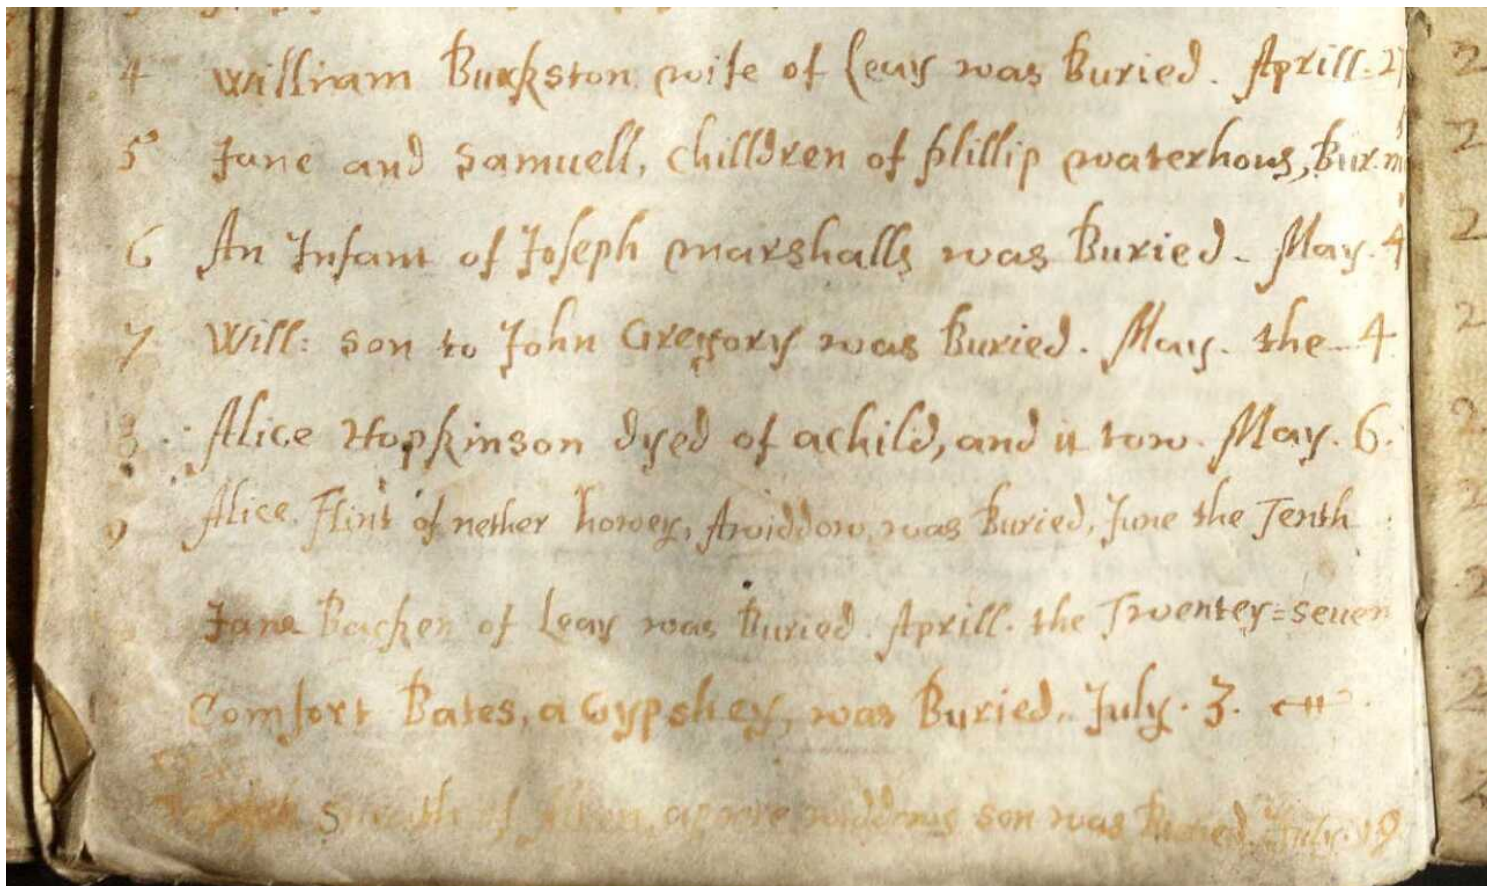 4 William Burkston wife of Leay was Buried. Aprill. 27
5 Jane and Samuell, Chilldren of phillip waterhous, Bur. m
6 An Infant of Joseph marshalls was Buried - May. 4
7 Will: son to John Gregory was Buried. May. the 4
8 Alice Hopkinson dyed of achild, and it tow. May. 6.
9 Alice Flint of nether howey, Awiddow, was Buried, June the Tenth
Jane Backen of Leay was Buried. Aprill. the Twentey=seuen
Comfort Bates, a Gypshey, was Buried. July. 3.
Smith of a widdows son was Buried. July. 19